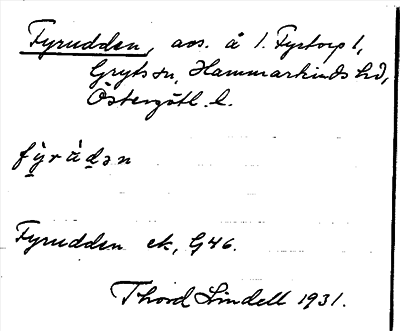 Fyrudden, avs. å 1. Fyrtorp 1,
Gryts sn, Hammarkinds hd,
Östergötl. l.
fỳ̱ràd̲ən
Fyrudden ek, G46.
Thord Lindell 1931.